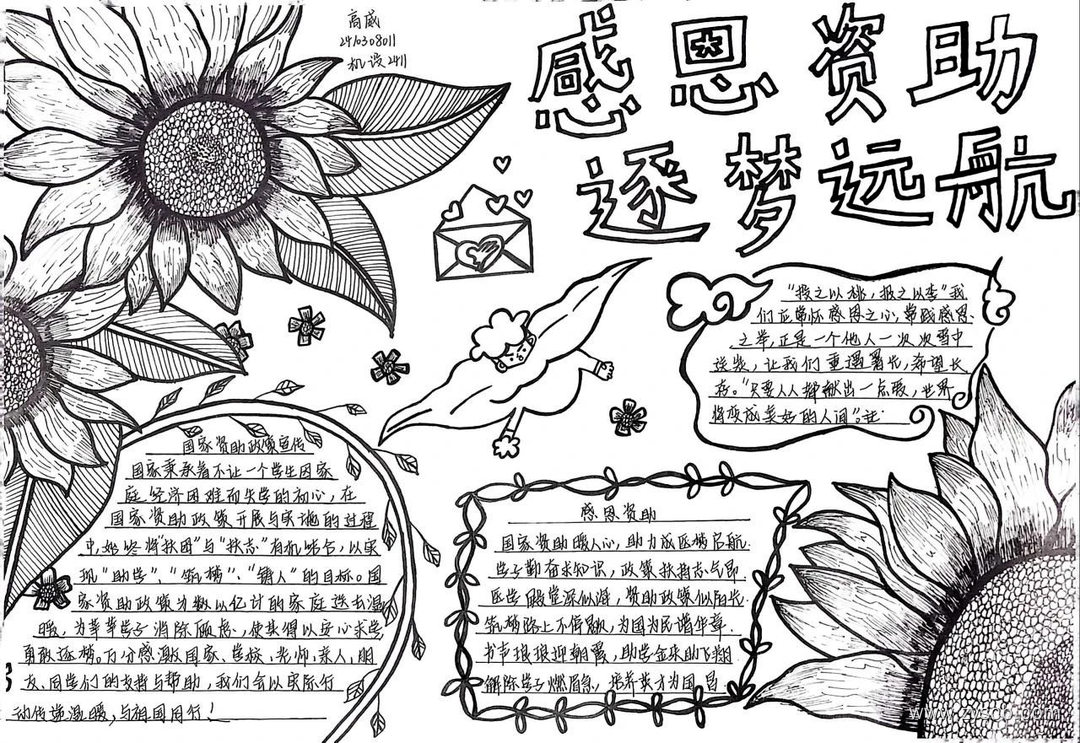 高威
2410308011
机设2411
感恩资助
逐梦远航
"投之以桃，报之以李"我
们应常怀感恩之心，常践感恩
之举，正是一个他人一次次雪中
送炭，让我们重遇曙光，希望长
存。"只要人人都献出一点爱，世界
将变成美好的人间"。
国家资助政策宣传
国家秉承着不让一个学生因家
庭经济困难而失学的初心，在
国家资助政策开展与实施的过程
中，始终将"扶困"与"扶志"有机结合，以实
现"助学"、"筑梦"、"铸人"的目标。国
家资助政策为数以亿计的家庭送去温
暖，为莘莘学子消除顾虑，使其得以安心求学，
勇敢逐梦。万分感激国家、学校、老师、亲人、朋
友、同学们的支持与帮助，我们会以实际行
动传递温暖，与祖国同行！
感恩资助
国家资助暖人心，助力成医梦启航
学子勤奋求知识，政策扶持志气昂
医学殿堂深似海，资助政策似阳光
筑梦路上不停歇，为国为民谱华章
书声琅琅迎朝霞，助学金来助飞翔
解除学子燃眉急，培养英才为国昌